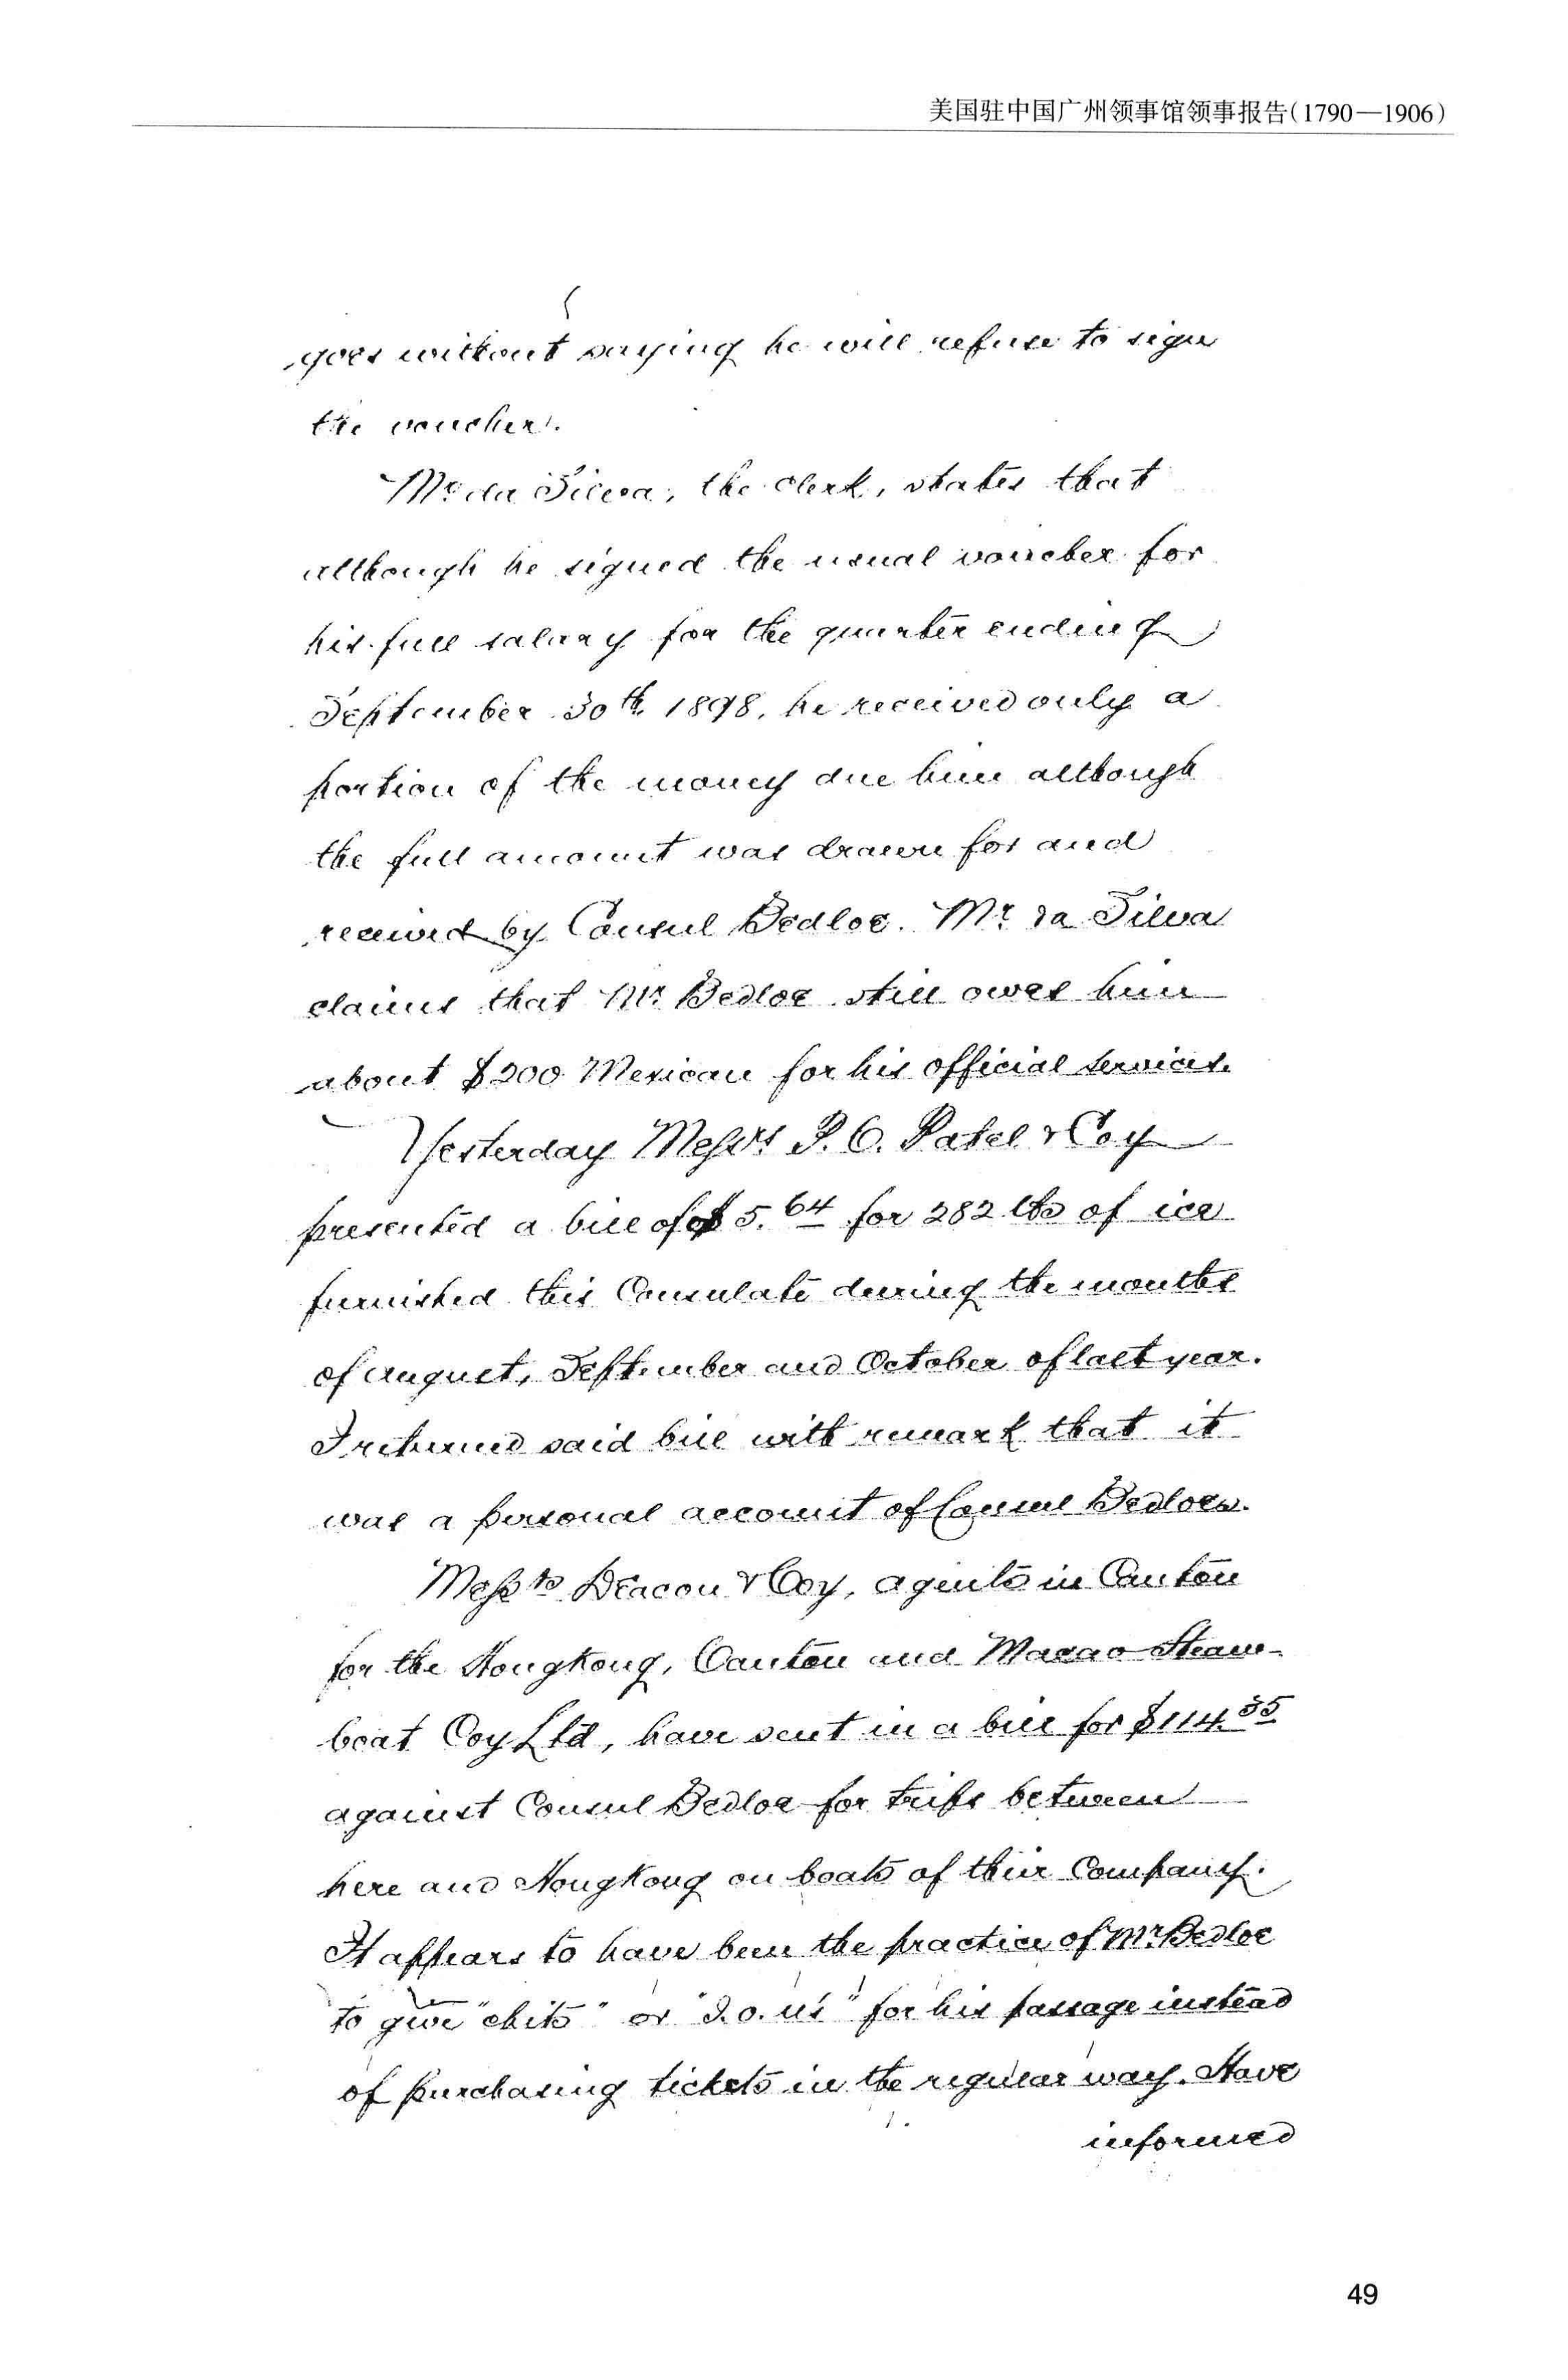 美国驻中国广州领事馆领事报告(1790—1906)
goes without saying he will refuse to sign
the voucher.
Mr da Silva, the clerk, states that
although he signed the usual voucher for
his full salary for the quarter ending
September 30th 1898, he received only a
portion of the money due him although
the full amount was drawn for and
received by Consul Bedloe. Mr da Silva
claims that Mr Bedloe still owes him
about $200 Mexican for his official services.
Yesterday Messrs P. O. Patel & Coy
presented a bill of $5.64 for 282 lbs of ice
furnished this Consulate during the months
of August, September and October of last year.
I returned said bill with remark that it
was a personal account of Consul Bedloe's.
Messrs Deacon & Coy, agents in Canton
for the Hongkong, Canton and Macao Steam-
boat Coy Ltd, have sent in a bill for $114.35
against Consul Bedloe for trips between
here and Hongkong on boats of their Company.
It appears to have been the practice of Mr Bedloe
to give "chits" or "I.O.U's" for his passage instead
of purchasing tickets in the regular way. Have
informed
49